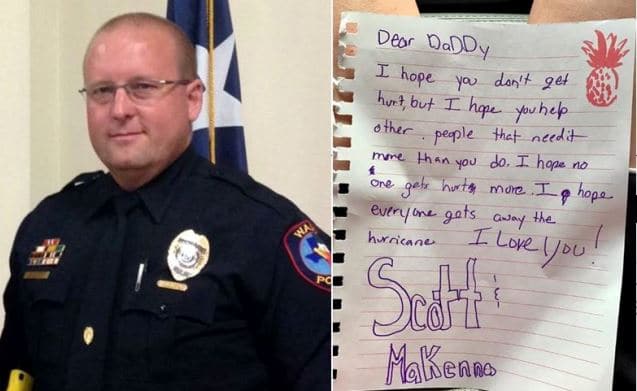 WA
PO
Dear DaDDy
I hope you don't get
hurt, but I hope you help
other people that need it
more than you do. I hope no
one gets hurt more. I hope
everyone gets away the
hurricane I Love you!
Scott &
MaKenna